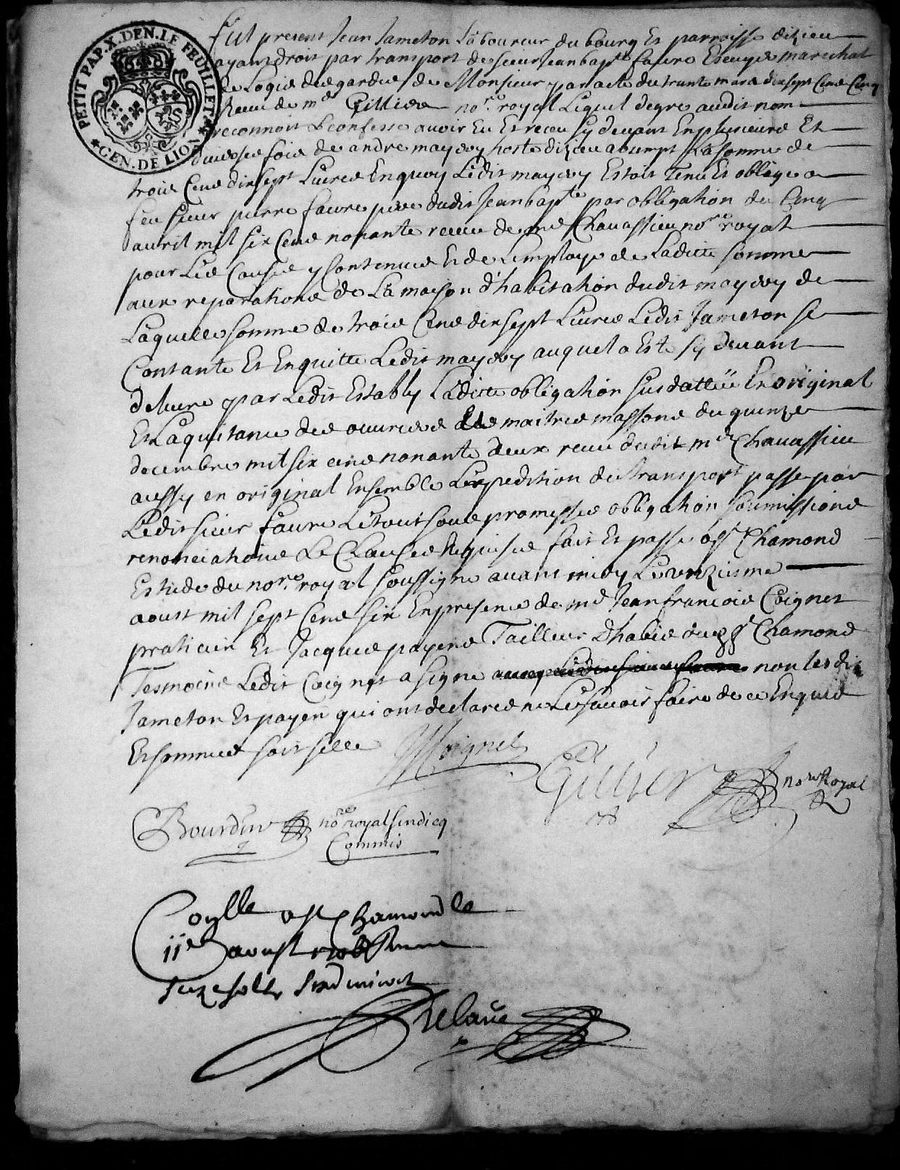 PETIT PAP. X. DEN. LE FEUILLET
GEN. DE LION
Fut present Jean Jameton Laboureur du bourg Et parroisse dizieu
ayant droit par transport de sieur Jean bapte faure Escuyer marechal
de Logis des gardes de Monsieur par acte du trante mars dix sept Cens Cinq
Receu de me Gillier nore royal Lequel de gre audit nom
reconnoit Et confesse avoir Eu Et receu cy devant En plusieurs Et
diverses fois de andre mayery hoste dizieu absent La somme de
trois Cens dix sept Livres En quoy Ledit mayery Estoit tenu Et oblige a
feu sieur pierre faure pere dudit Jean bapte par obligation du Cinq
avril mil six Cens nonante receue de me Chavassieu nore royal
pour Les Causes y contenues Et de L'employe de Laditte somme
aux reparations de La maison d'habitation dudit mayery de
Laquelle somme de trois Cens dix sept Livres Ledit Jameton se
Contante Et En quitte Ledit mayery auquel a Esté cy devant
delivre par Ledit Estably Laditte obligation susdattée En original
Et La quitance des ouvriers Et maitres massons du quinze
decembre mil six cens nonante deux receu dudit me Chavassieu
aussy en original Ensemble L'expedition du transport passe par
Ledit sieur faure Le tout sous promesses obligation soumissions
renonciations Et Clauses Requises fait Et passe a St Chamond
Estude du nore royal soussigne avant midy Le onziesme
aoust mil sept Cens six En presence de me Jean francois Coignet
praticien Et Jacques payens Tailleur d'habis dudt St Chamond
Tesmoins Ledit Coignet a signe non lesdis
Jameton Et payen qui ont declare ne Le scavoir faire de ce Enquis
Et sommes soit selle
Coignet
Gillier nore Royal
Bourdin nore royal sindicq
Commis
Conlle a St Chamond le
11e aoust
Delaue